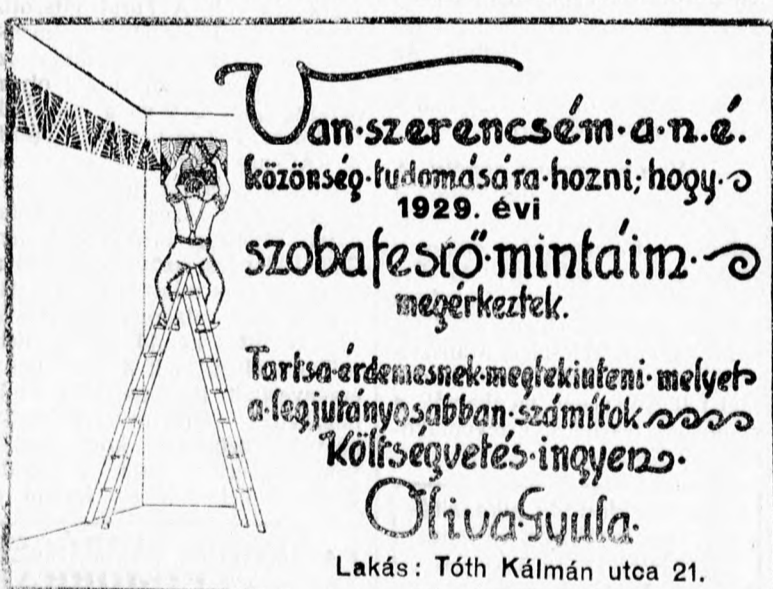 Van szerencsém a n. é.
közönség tudomására hozni; hogy
1929. évi
szobafestő mintáim
megérkeztek.
Tartsa érdemesnek megtekinteni melyet
a legjutányosabban számítok
Költségvetés ingyen.
Oliva Gyula.
Lakás: Tóth Kálmán utca 21.